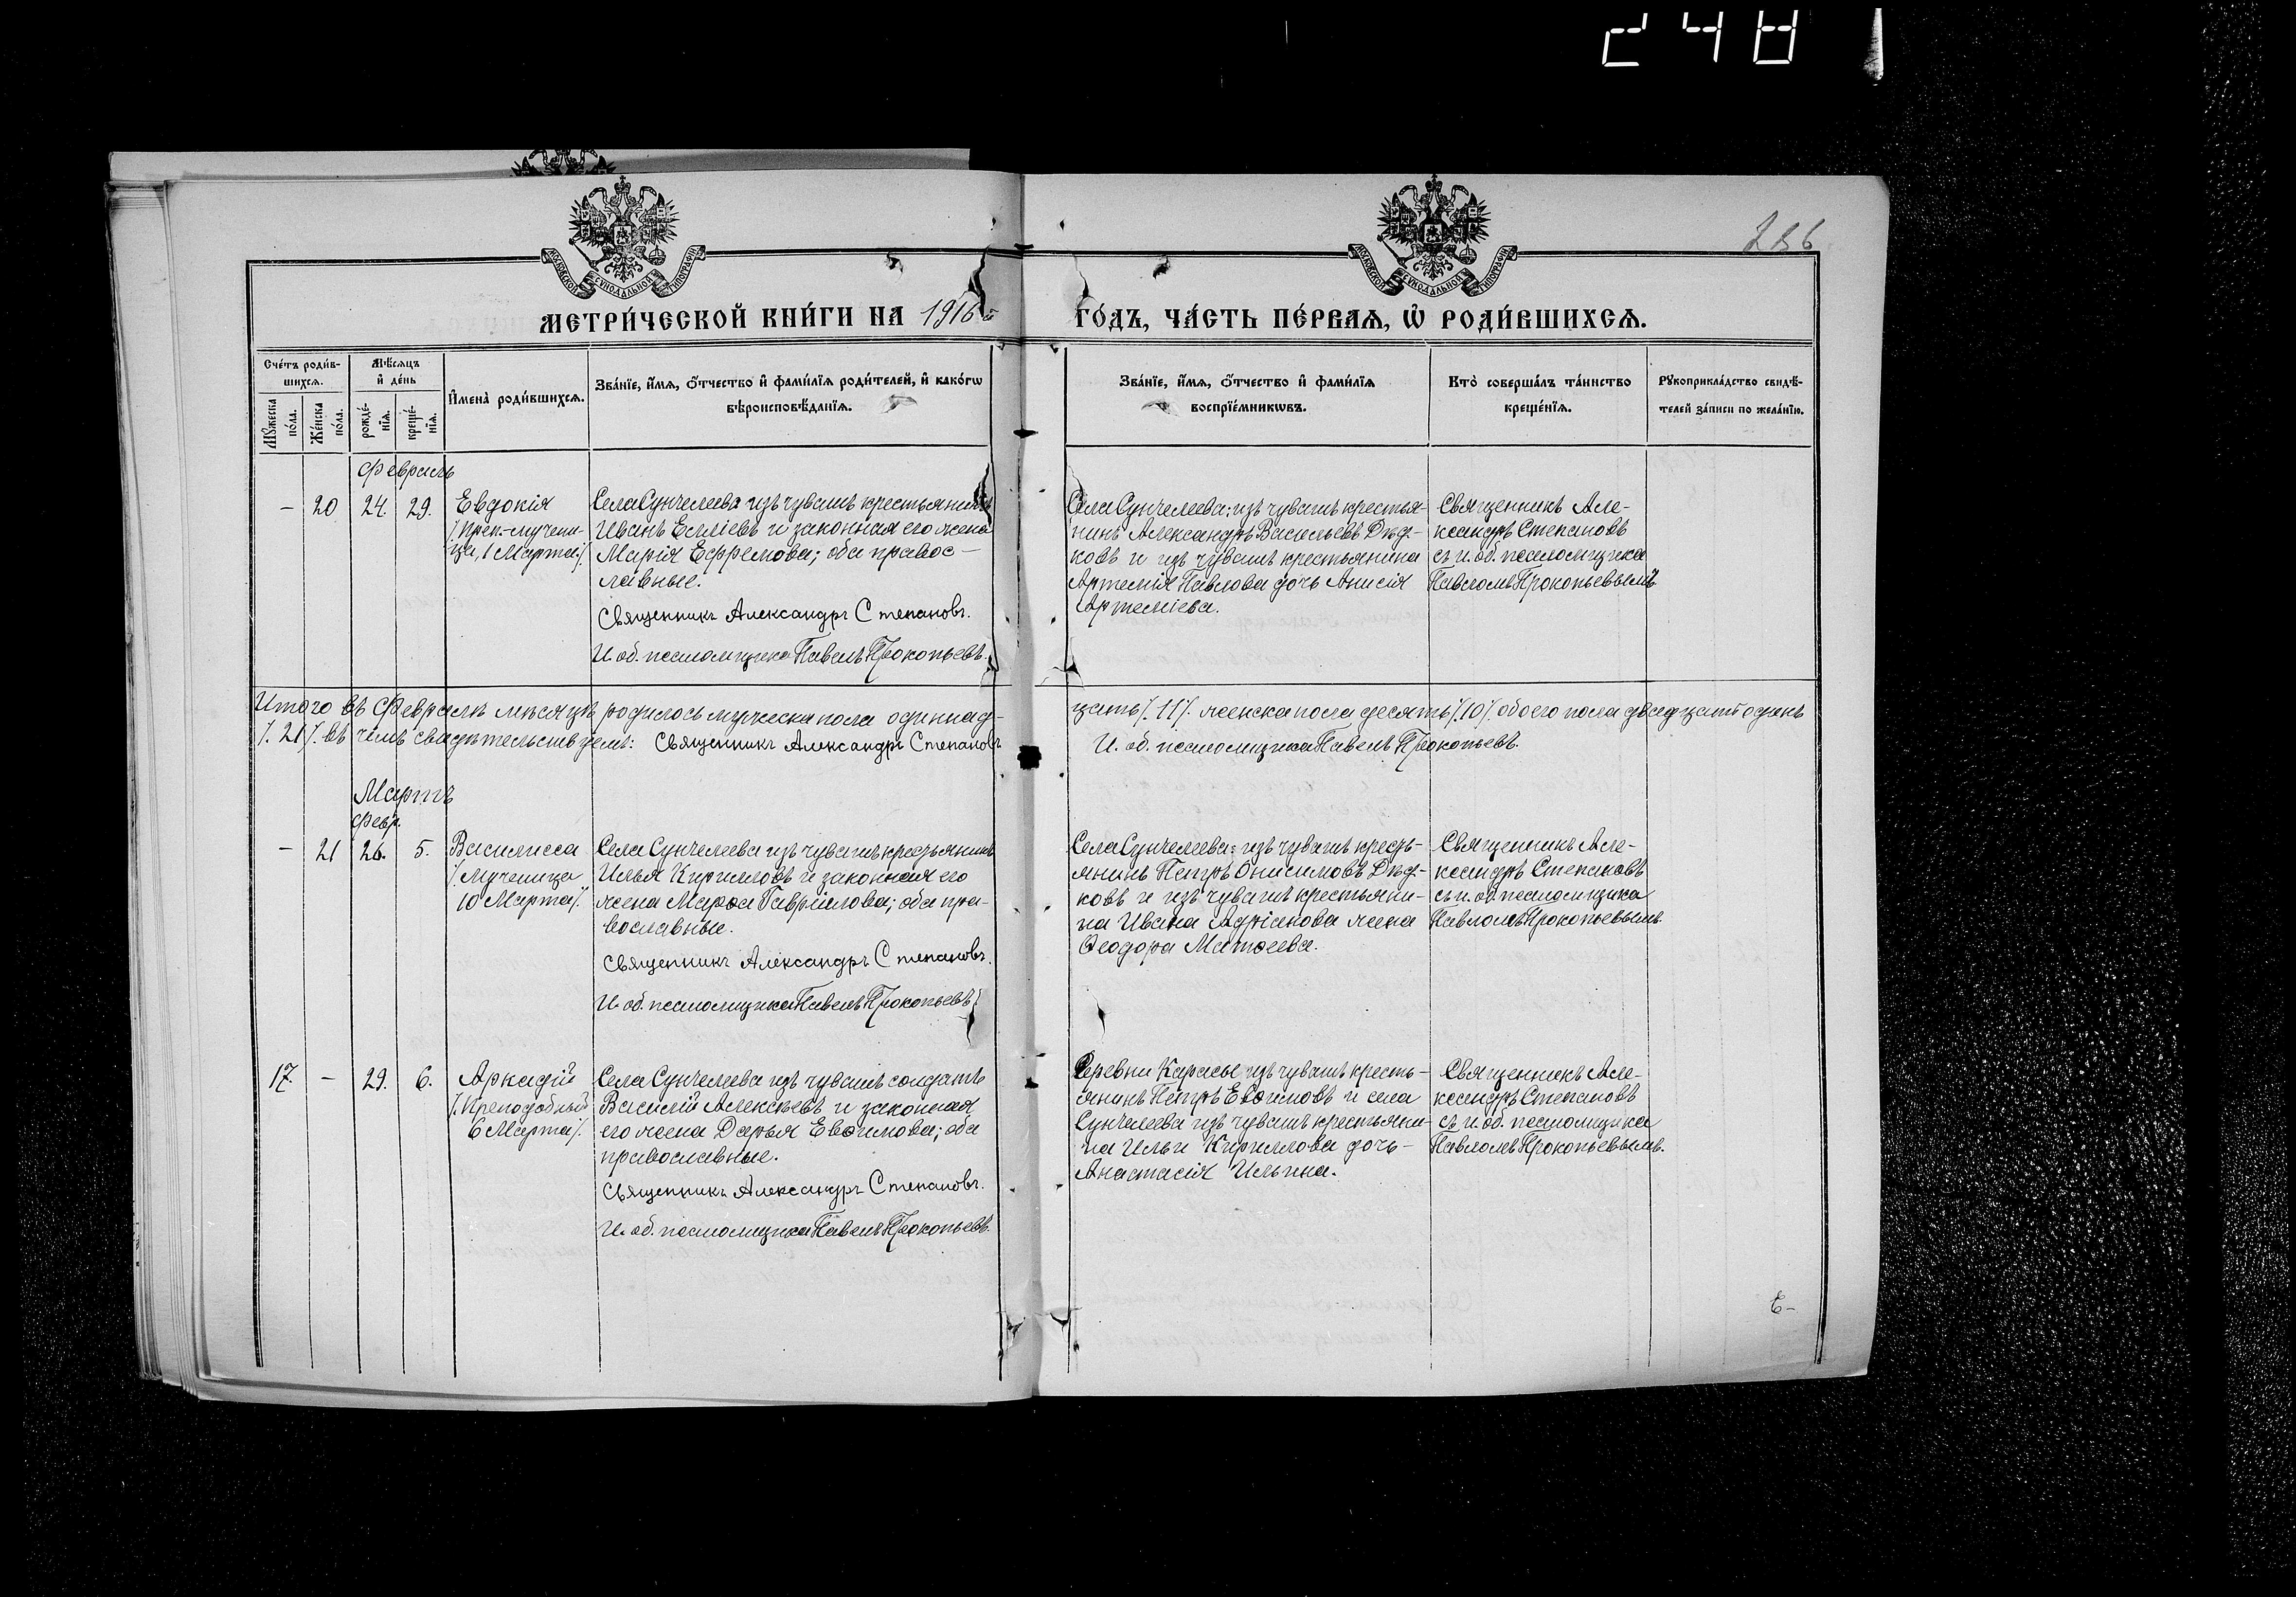 248
286
МОСКОВСКОЙ СѴНОДАЛЬНОЙ ТИПОГРАФІИ
МОСКОВСКОЙ СѴНОДАЛЬНОЙ ТИПОГРАФІИ
МЕТРИ́ЧЕСКОЙ КНИ́ГИ НА 1916й ГО́ДЪ, ЧА́СТЬ ПЕ́РВАѦ, Ѡ҆ РОДИ́ВШИХСѦ.
Сче́тъ роди́в-
шихсѧ.
Мꙋ́жеска по́ла.
Же́нска по́ла.
Мѣ́сѧцъ
и҆ де́нь
рожде́-
нїѧ.
креще́-
нїѧ.
И҆мена̀ роди́вшихсѧ.
Зва́нїе, и҆́мѧ, ѻ҆́тчество и҆ фами́лїѧ роди́телей, и҆ како́гѡ
вѣроисповѣ́данїѧ.
Зва́нїе, и҆́мѧ, ѻ҆́тчество и҆ фами́лїѧ
воспрїе́мникѡвъ.
Кто̀ соверша́лъ та́инство
креще́нїѧ.
Рꙋкоприкла́дство свидѣ́-
телей за́писи по жела́нїю.
Февраль
– 20 24. 29.
Евдокія
/. Преп.-мучени-
ца, 1 Марта./.
Села Сунчелеева изъ чувашъ крестьянинъ
Иванъ Еслліевъ и законная его жена
Марія Ефремова; оба правос-
лавные.
Священникъ Александръ Степановъ.
И. об. псаломщика Павелъ Прокопьевъ.
Села Сунчелеева: изъ чувашъ крестья-
нинъ Александръ Васильевъ Дѣд-
ковъ и изъ чувашъ крестьянина
Артемія Павлова дочь Анисія
Артеміева.
Священникъ Але-
ксандръ Степановъ
съ и. об. псаломщика
Павломъ Прокопьевымъ
Итого въ Февралѣ мѣсяцѣ родилось мужеска пола одиннад-
цать /. 11 /. женска пола десять /. 10 /. обоего пола двадцать одинъ
/. 21 /. въ чемъ свидѣтельствуемъ: Священникъ Александръ Степановъ
И. об. псаломщика Павелъ Прокопьевъ.
Мартъ
Февр.
– 21 26. 5.
Василисса
/. Мученица
10 Марта/.
Села Сунчелеева изъ чувашъ крестьянинъ
Илья Кирилловъ и законная его
жена Марѳа Гаврилова; оба пра-
вославные.
Священникъ Александръ Степановъ.
И. об. псаломщика Павелъ Прокопьевъ
Села Сунчелеева: изъ чувашъ кресть-
янинъ Петръ Онисимовъ Дѣд-
ковъ и изъ чувашъ крестьяни-
на Ивана Адріанова жена
Ѳеодора Матѳеева.
Священникъ Але-
ксандръ Степановъ
съ и. об. псаломщика
Павломъ Прокопьевымъ.
17. – 29. 6.
Аркадій
/. Преподобный
6 Марта/.
Села Сунчелеева изъ чувашъ солдатъ
Василій Алексѣевъ и законная
его жена Дарья Евѳимова; оба
православные.
Священникъ Александръ Степановъ.
И. об. псаломщика Павелъ Прокопьевъ.
Деревни Карасье изъ чувашъ кресть-
янинъ Петръ Евѳимовъ и села
Сунчелеева изъ чувашъ крестьяни-
на Ильи Кириллова дочь
Анастасія Ильина.
Священникъ Але-
ксандръ Степановъ
съ и. об. псаломщика
Павломъ Прокопьевымъ.